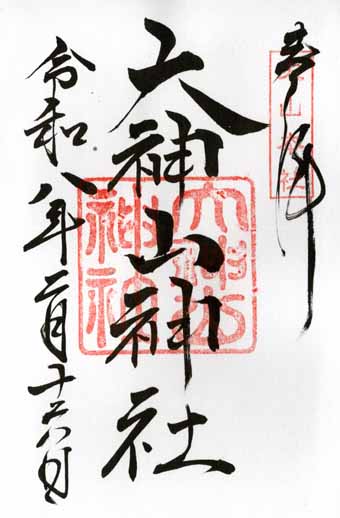 奉拝
大神山神社
大神山神社
令和八年二月十六日